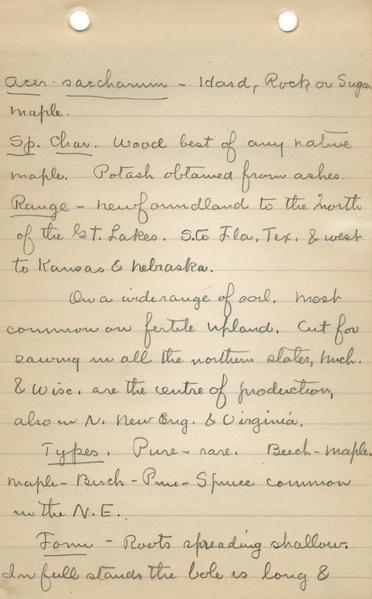 Acer saccharum - Hard, Rock or Sugar
maple.
Sp. Char. Wood best of any native
maple. Potash obtained from ashes.
Range - Newfoundland to the north
of the Gt. Lakes. S. to Fla, Tex. & west
to Kansas & Nebraska.
On a wide range of soil. Most
common on fertile upland. Cut for
sawing in all the northern states, Mich.
& Wisc. are the centre of production,
also in N. New Eng. & Virginia.
Types. Pure - rare. Beech-maple.
Maple-Birch-Pine-Spruce common
in the N.E.
Form - Roots spreading shallow.
In full stands the bole is long &